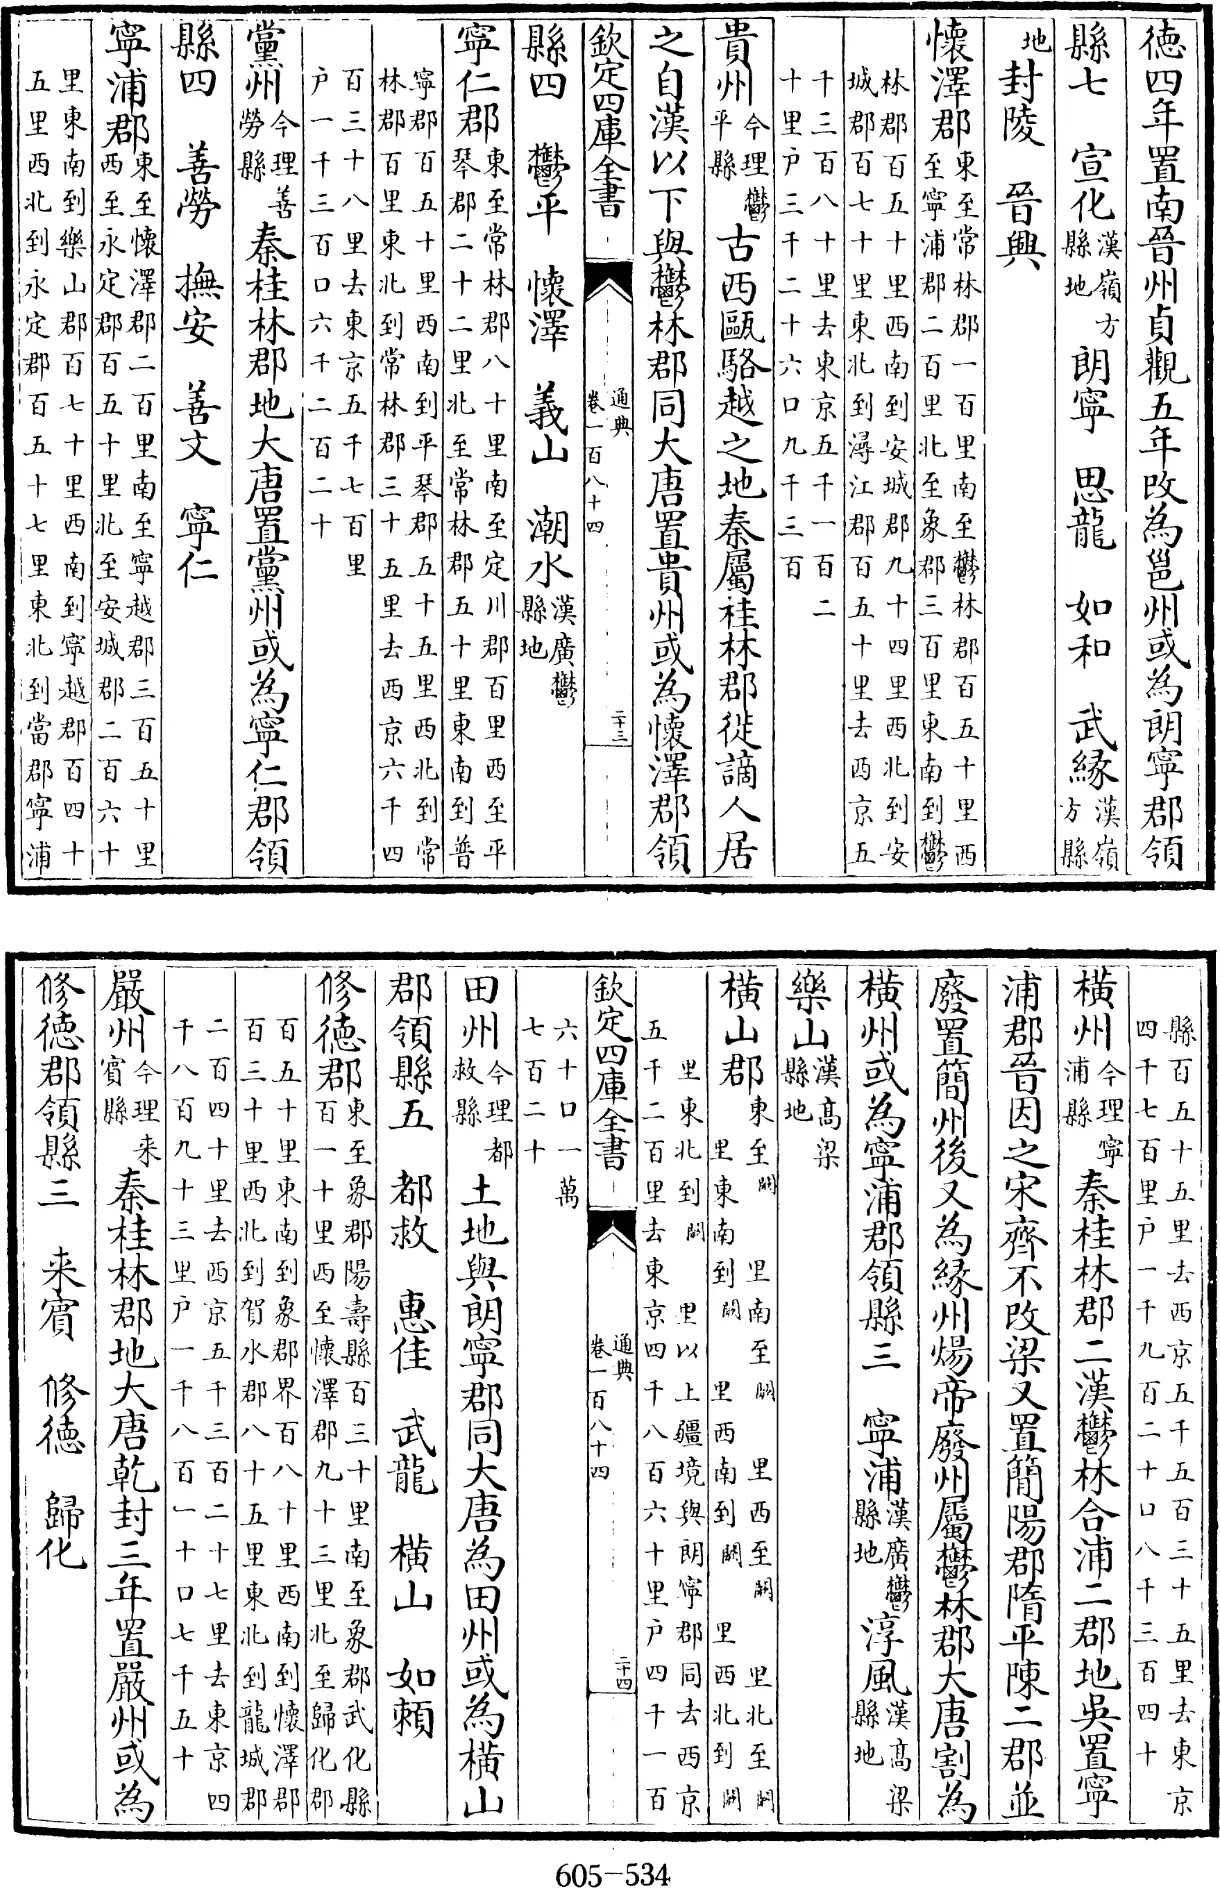 德四年置南晉州貞觀五年改為邕州或為朗寧郡領
縣七 宣化漢嶺方縣地 朗寧 思龍 如和 武縁漢嶺方縣
地封陵 晉興
懷澤郡東至常林郡一百里南至鬱林郡百五十里西至寧浦郡二百里北至象郡三百里東南到鬱
林郡百五十里西南到安城郡九十四里西北到安城郡百七十里東北到潯江郡百五十里去西京五
千三百八十里去東京五千一百二十里户三千二十六口九千三百
貴州今理鬱平縣古西甌駱越之地秦屬桂林郡徙謫人居
之自漢以下與鬱林郡同大唐置貴州或為懷澤郡領
欽定四庫全書 通典卷一百八十四 二十三
縣四 鬱平 懷澤 義山 潮水漢廣鬱縣地
寧仁郡東至常林郡八十里南至定川郡百里西至平琴郡二十二里北至常林郡五十里東南到普
寧郡百五十里西南到平琴郡五十五里西北到常林郡百里東北到常林郡三十五里去西京六千四
百三十八里去東京五千七百里户一千三百口六千二百二十
黨州今理善勞縣秦桂林郡地大唐置黨州或為寧仁郡領
縣四 善勞 撫安 善文 寧仁
寧浦郡東至懷澤郡二百里南至寧越郡三百五十里西至永定郡百五十里北至安城郡二百六十
里東南到樂山郡百七十里西南到寧越郡百四十五里西北到永定郡百五十七里東北到當郡寧浦
縣百五十五里去西京五千五百三十五里去東京四千七百里户一千九百二十口八千三百四十
橫州今理寧浦縣秦桂林郡二漢鬱林合浦二郡地吳置寧
浦郡晉因之宋齊不改梁又置簡陽郡隋平陳二郡並
廢置簡州後又為縁州煬帝廢州屬鬱林郡大唐割為
橫州或為寧浦郡領縣三 寧浦漢廣鬱縣地淳風漢高梁縣地
樂山漢高梁縣地
橫山郡東至闕里南至闕里西至闕里北至闕里東南到闕里西南到闕里西北到闕
里東北到闕里以上疆境與朗寧郡同去西京五千二百里去東京四千八百六十里户四千一百
欽定四庫全書 通典卷一百八十四 二十四
六十口一萬七百二十
田州今理都救縣土地與朗寧郡同大唐為田州或為橫山
郡領縣五 都救 惠佳 武龍 橫山 如賴
修德郡東至象郡陽壽縣百三十里南至象郡武化縣百一十里西至懷澤郡九十三里北至歸化郡
百五十里東南到象郡界百八十里西南到懷澤郡百三十里西北到賀水郡八十五里東北到龍城郡
二百四十里去西京五千三百二十七里去東京四千八百九十三里户一千八百一十口七千五十
嚴州今理来賓縣秦桂林郡地大唐乾封三年置嚴州或為
修德郡領縣三 来賓 修德 歸化
605-534